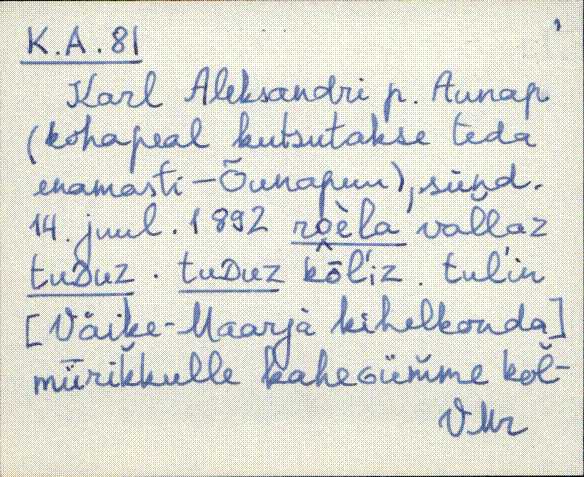 K.A.81
Karl Aleksandri p. Aunap
(kohapeal kutsutakse teda
enamasti – Õunapuu), sünd.
14. juul. 1892 roèla vallaz
tuᴅuz. tuᴅuz kōĺiz. tuĺin
[Väike-Maarja kihelkonda]
mǖrikkulle kaheɢümme kol-
VMr